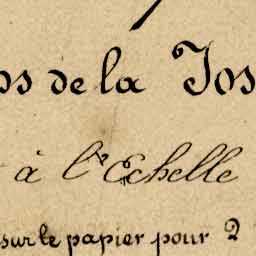 os de la Jos
à l'Echelle
sur le papier pour 2